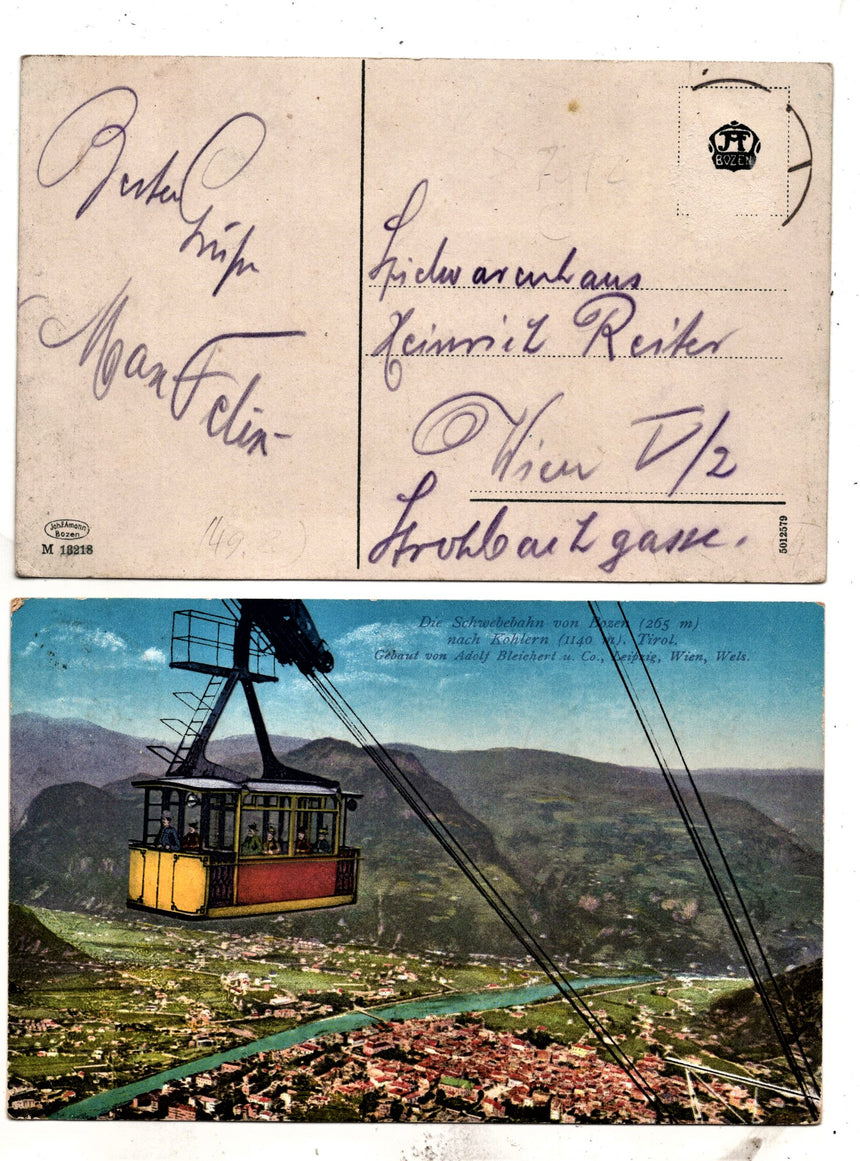 Besten
Grüße
Max Felix
JFA
BOZEN
Heinrich Reiter
Wien V/2
Strohbachgasse.
Joh.F.Amonn
Bozen
M 18218
5012579
Die Schwebebahn von Bozen (265 m)
nach Kohlern (1140 m), Tirol.
Gebaut von Adolf Bleichert u. Co., Leipzig, Wien, Wels.